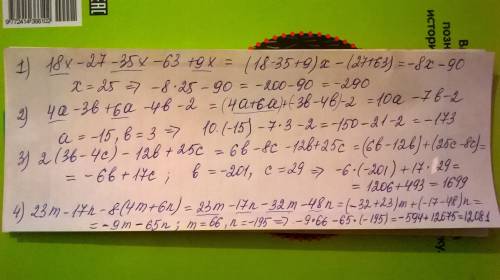 9772414386602
1) 18x-27-35x-63+9x = (18-35+9)x-(27+63)=-8x-90
x=25 ⇒ -8·25-90=-200-90=-290
2) 4a-3b+6a-4b-2=(4a+6a)+(-3b-4b)-2=10a-7b-2
a=-15, b=3 ⇒ 10·(-15)-7·3-2=-150-21-2=-173
3) 2(3b-4c)-12b+25c=6b-8c-12b+25c=(6b-12b)+(25c-8c)=
=-6b+17c; b=-201, c=29 ⇒ -6·(-201)+17·29=
=1206+493=1699
4) 23m-17n-8(4m+6n)=23m-17n-32m-48n=(-32+23)m+(-17-48)n=
=-9m-65n; m=66, n=-195 ⇒ -9·66-65·(-195)=-594+12675=12081